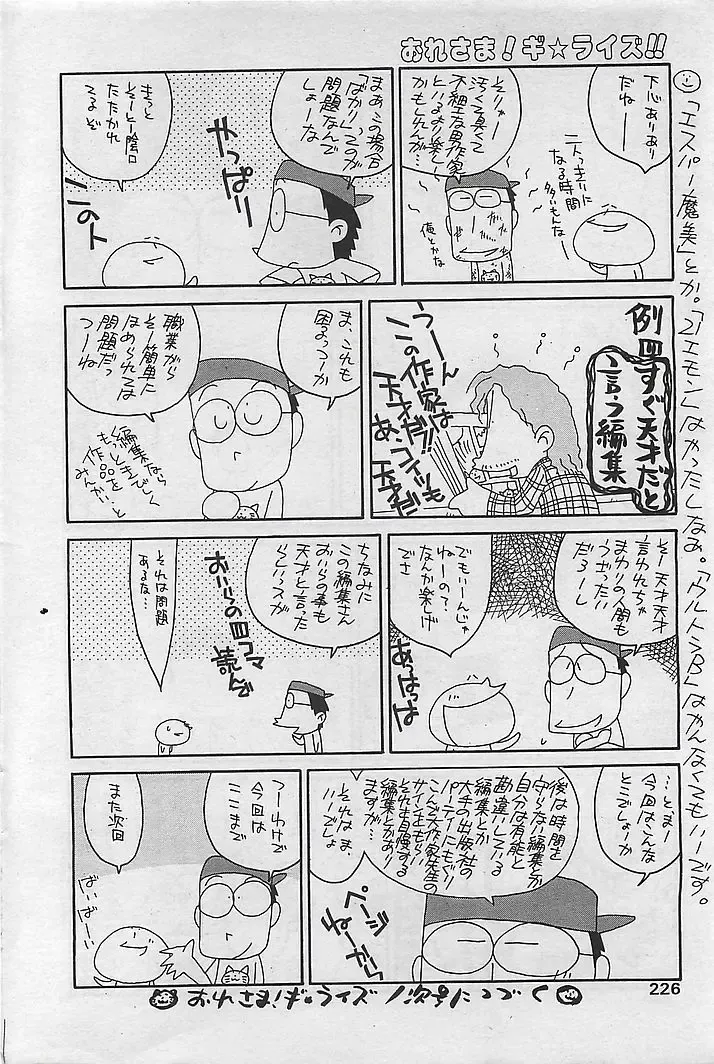 おれさま!ギ☆ライズ!!
「エスパー魔美」とか。「21エモン」はやったしなあ。「ウルトラB」はやんなくてもいーです。
下心ありあり
だねー
二人っきりに
なる時間
多いもんなー
そりゃー
汚くて臭くて
不細工な男作家
といるより楽しー
かもしれんが…
俺とかな
まぁこの場合
「ばかり」ってのが
問題なんで
しょーな
やっぱり
きっと
そーとー陰口
たたかれ
てるぞ
このト
例四
すぐ天才だと
言う編集
うーん
この作家は
天才だ!!
あ、コイツも
天才だ
ま、これも
困るっつーか
職業がら
そー簡単に
ほめられては
問題だっ
つーね
編集なら
もっときびしく
作品を
みんかい…と
そー天才天才
言われちゃ
まわりの人間も
うざったい
だろーし
でもいーんじゃ
ねーの?
なんか楽しげ
でさ
あはっはっは
ちなみに
この編集さん
おいらの事も
天才と言った
らしいっスが
おいらの四コマ
読んで
それは問題
あるな…
…とまー
今回はこんな
とこでしょーか
後は時間を
守らない編集とか
自分は有能と
勘違いしている
編集とか
大手の出版社の
パーティーにもぐり
こんで大作家先生の
サインをもらい
それを自慢する
編集とかあり
ますが…
それはま、
いーでしょ
ページ
ねーから
つーわけで
今回は
ここまで
また次回
ばいばーい
おれさま!ギ☆ライズ/次号につづく
226